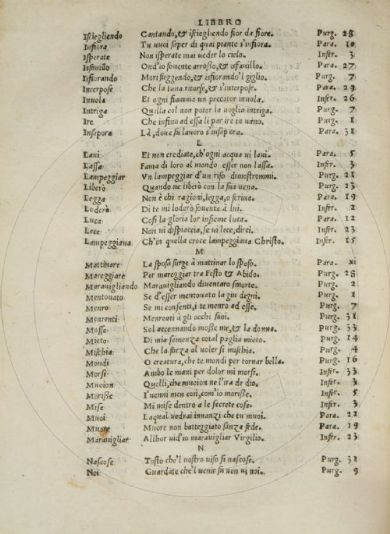 LIBRO
Iscegliendo Cantando, et iscegliendo fior da fiore. Purg. 28
Infiora Tu vuoi saper di quai piante s'infiora. Para. 10
Isperate Non isperate mai veder lo cielo. Infer. 3
Ond'io sovente arrosso, et Para. 27
Infiorando Mori fuggendo, et infiorando'l giglio. Purg. 7
Interpose Che la luna ritorse, et s'interpose. Para. 29
Invola Et ogni fiamma un peccator invola. Infer. 26
Intriga Quella col non poter la voglia intriga. Purg. 7
Ire. Che infino ad essa li par ire in vano. Purg. 1
Insapora Là, dove suo lavoro s'insapora. Para. 31
L
Lavi Et non crediate, ch'ogni acqua vi lavi. Para. 5
Lassa Fama di loro al mondo esser non lassa. Infer. 3
Lampeggiar Un lampeggiar d'un riso dimostrommi. Purg. 21
Liberò Quando ne liberò con la sua vena. Purg. 23
Legga Non è chi ragioni, legga, o scriva. Para. 19
Loderò Di te mi loderò sovente à lui. Infer. 2
Luca Cosi la gloria lor insieme luca. Para. 12
Lece Non vi dispiaccia, se vi lece, dirci. Infer. 23
Lampeggiava Ch'in quella croce lampeggiava Christo. Infer. 15
M
Mattinare La sposa surge à mattinar lo sposo. Para. xi
Mareggiare Per mareggiar tra Sesto et Abido. Purg. 28
Maravigliando Maravigliando diventaro smorte. Purg. 2
Mentovato Se d'esser mentovato la giu degni. Purg. 1
Menro Se mi consenti, i te menrò ad esse. Purg. 7
Menrenti Menrenti à gli occhi suoi. Purg. 31
Mosse Sol accennando mosse me, et la donna. Purg. 33
Mieto Di mia semenza cotal paglia mieto. Purg. 14
Mischia Che la forza al voler si mischia. Para. 4
Mondi O creatura, che ti mondi per tornar bella. Purg. 16
Morsi Ambo le mani per dolor mi morsi. Infer. 33
Muoion Quelli, che muoion ne l'ira de dio. Infer. 3
Morisse I venni men così, com'io morisse. Infer. 5
Mise Mi mise dentro a le secrete cose. Infer. 3
Muoi Laqual vedrai innanzi che tu muoi. Para. 22
Muore Muore non batteggiato sanza fede. Para. 19
Maravigliar Allhor vid'io maravigliar Virgilio. Infer. 23
N
Nascose Tosto che'l vostro viso si nascose. Purg. 31
Noi Guardate che'l venir sù non vi noi. Purg. 9